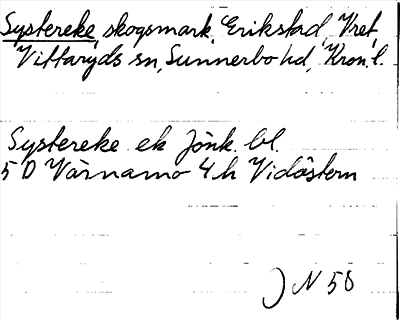 Systereke, skogsmark, Erikstad, Vret,
Vittaryds sn, Sunnerbo hd, Kron. l.
Systereke ek Jönk. bl.
5 D Värnamo 4 h Vidöstern
J N 50